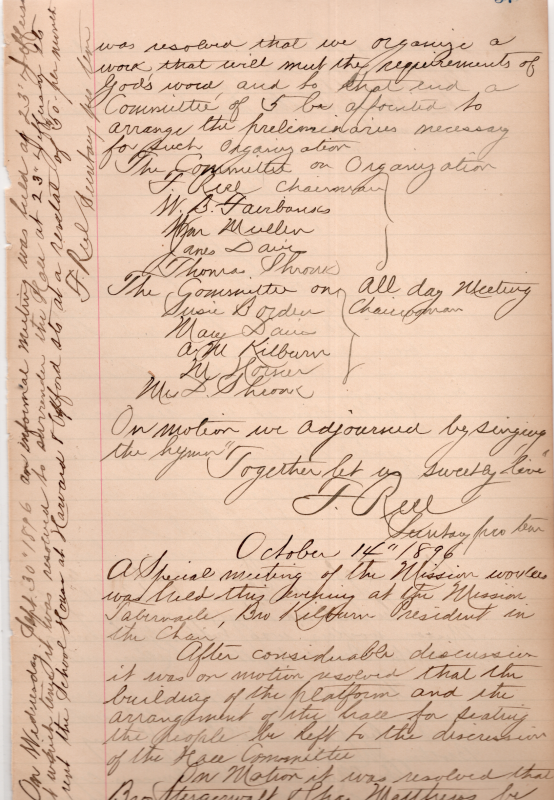 was resolved that we organize a
work that will meet the requirements of
God's word and to that end a
Committee of 5 be appointed to
arrange the preliminaries necessary
for such Organization
The Committee on Organization
F. Riel Chairman
W. B. Fairbanks
Wm Mullen
James Davis
Thomas Shronk
The Committee on all day Meeting
Susie Borden Chairwoman
Mary Davis
A. M. Kilburn
M
Mrs D. Shronk
On motion we adjourned by singing
the hymn "
Together let us sweetly live"
F. Riel
Secretary pro tem
October 14" 1896
A Special meeting of the Mission workers
was held this evening at the Mission
Tabernacle, Bro Kilburn President in
the Chair
After considerable discussion
it was on motion resolved that the
building of the platform and the
arrangement of the hall for seating
the people be left to the discression
of the Hall Committee
On Motion it was resolved that
Bro Matthews be
On Wednesday Sept 30" 1896 an informal meeting was held at 23"
at which time it was resolved to surrender the Hall at 23"
rent the School House at Harvard & Oxford sts at a rental of per month
F Riel Secretary pro tem